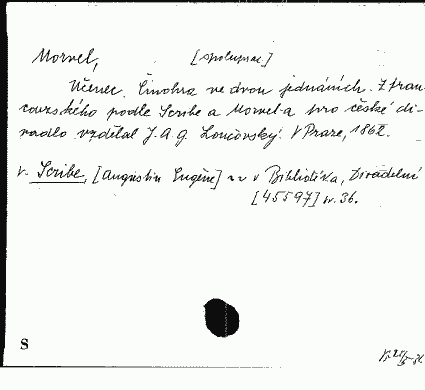 Morvel, [spoluprac.]
Učenec. Činohra ve dvou jednáních. Z fran-
couzského podle Scribe a Morvel-a pro české di-
vadlo vzdělal J. A. G. Loučovský. V Praze, 1862.
v. Scribe, [Augustin Eugène] v Bibliotéka, Divadelní
[45597] sv. 36.
S